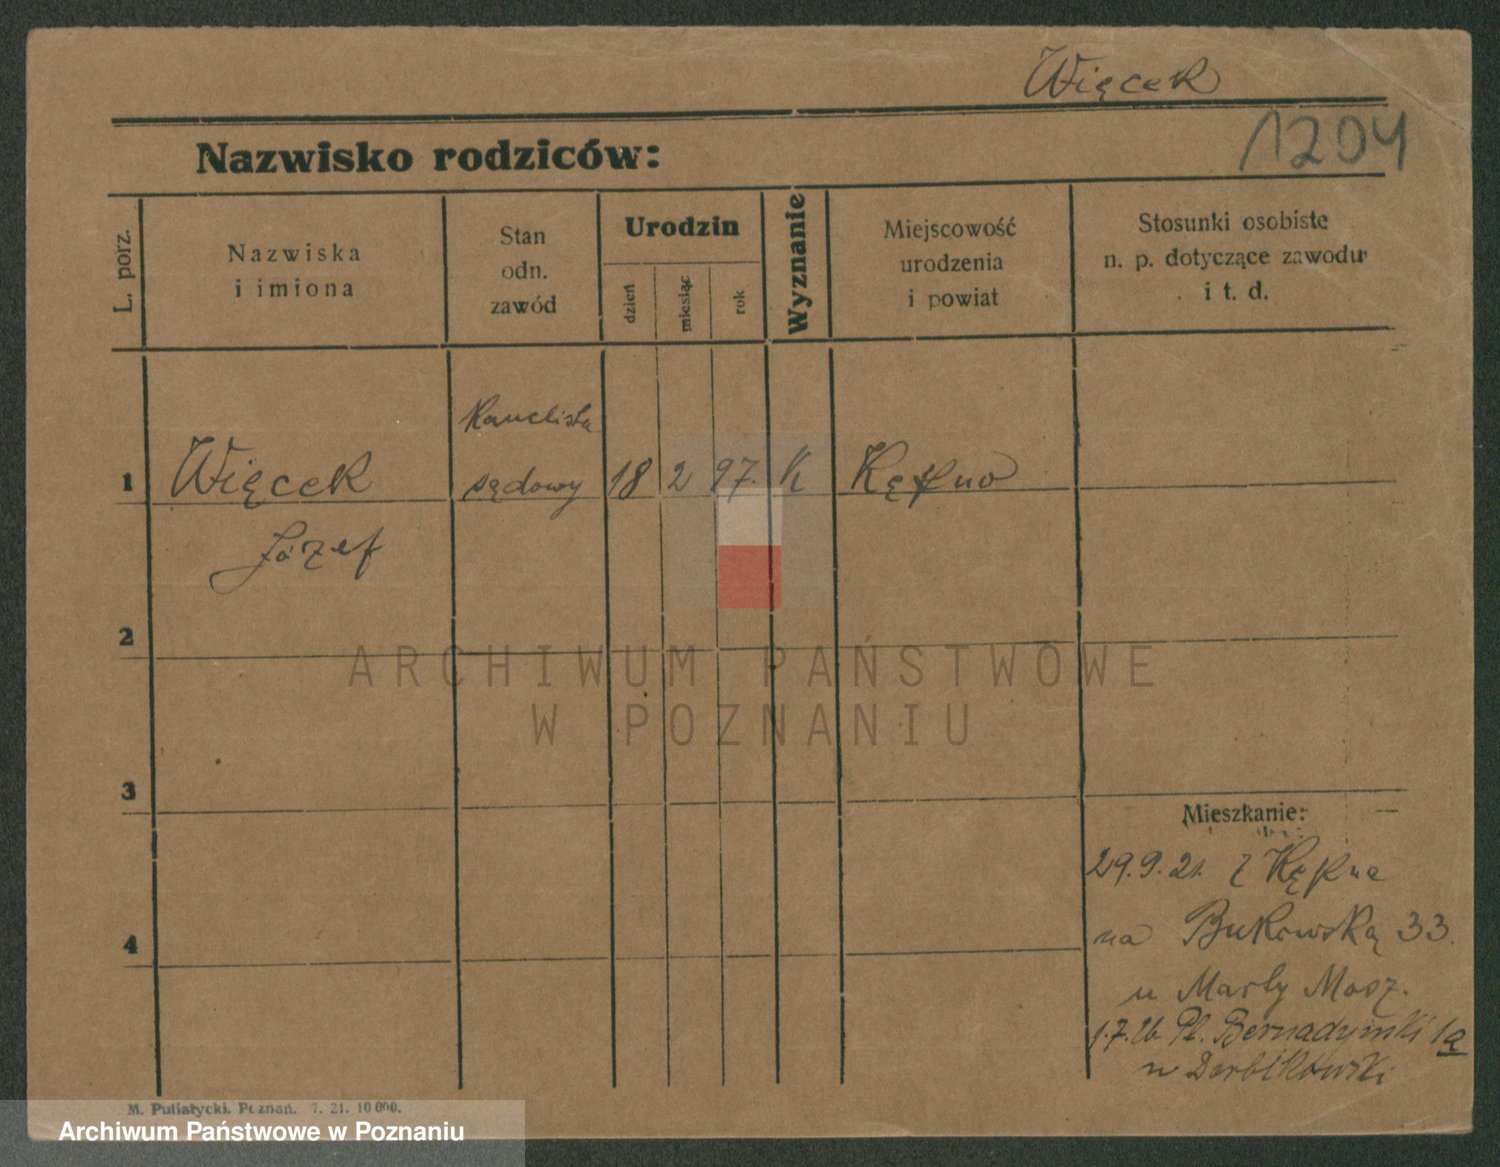 Więcek
1204
Nazwisko rodziców:
L. porz.
Nazwiska
i imiona
Stan
odn.
zawód
Urodzin
dzień
miesiąc
rok
Wyznanie
Miejscowość
urodzenia
i powiat
Stosunki osobiste
n. p. dotyczące zawodu
i t. d.
Kanclista
1 Więcek sądowy 18 2 97. K Kępno
Józef
2
ARCHIWUM PAŃSTWOWE
W POZNANIU
3
Mieszkanie:
29.9.21. z Kępna
4
na Bukowską 33.
u Marly Mosz.
1.7.26 Pl. Bernadyński 1a
M. Putiatycki, Poznań. 7. 21. 10 000.
Archiwum Państwowe w Poznaniu